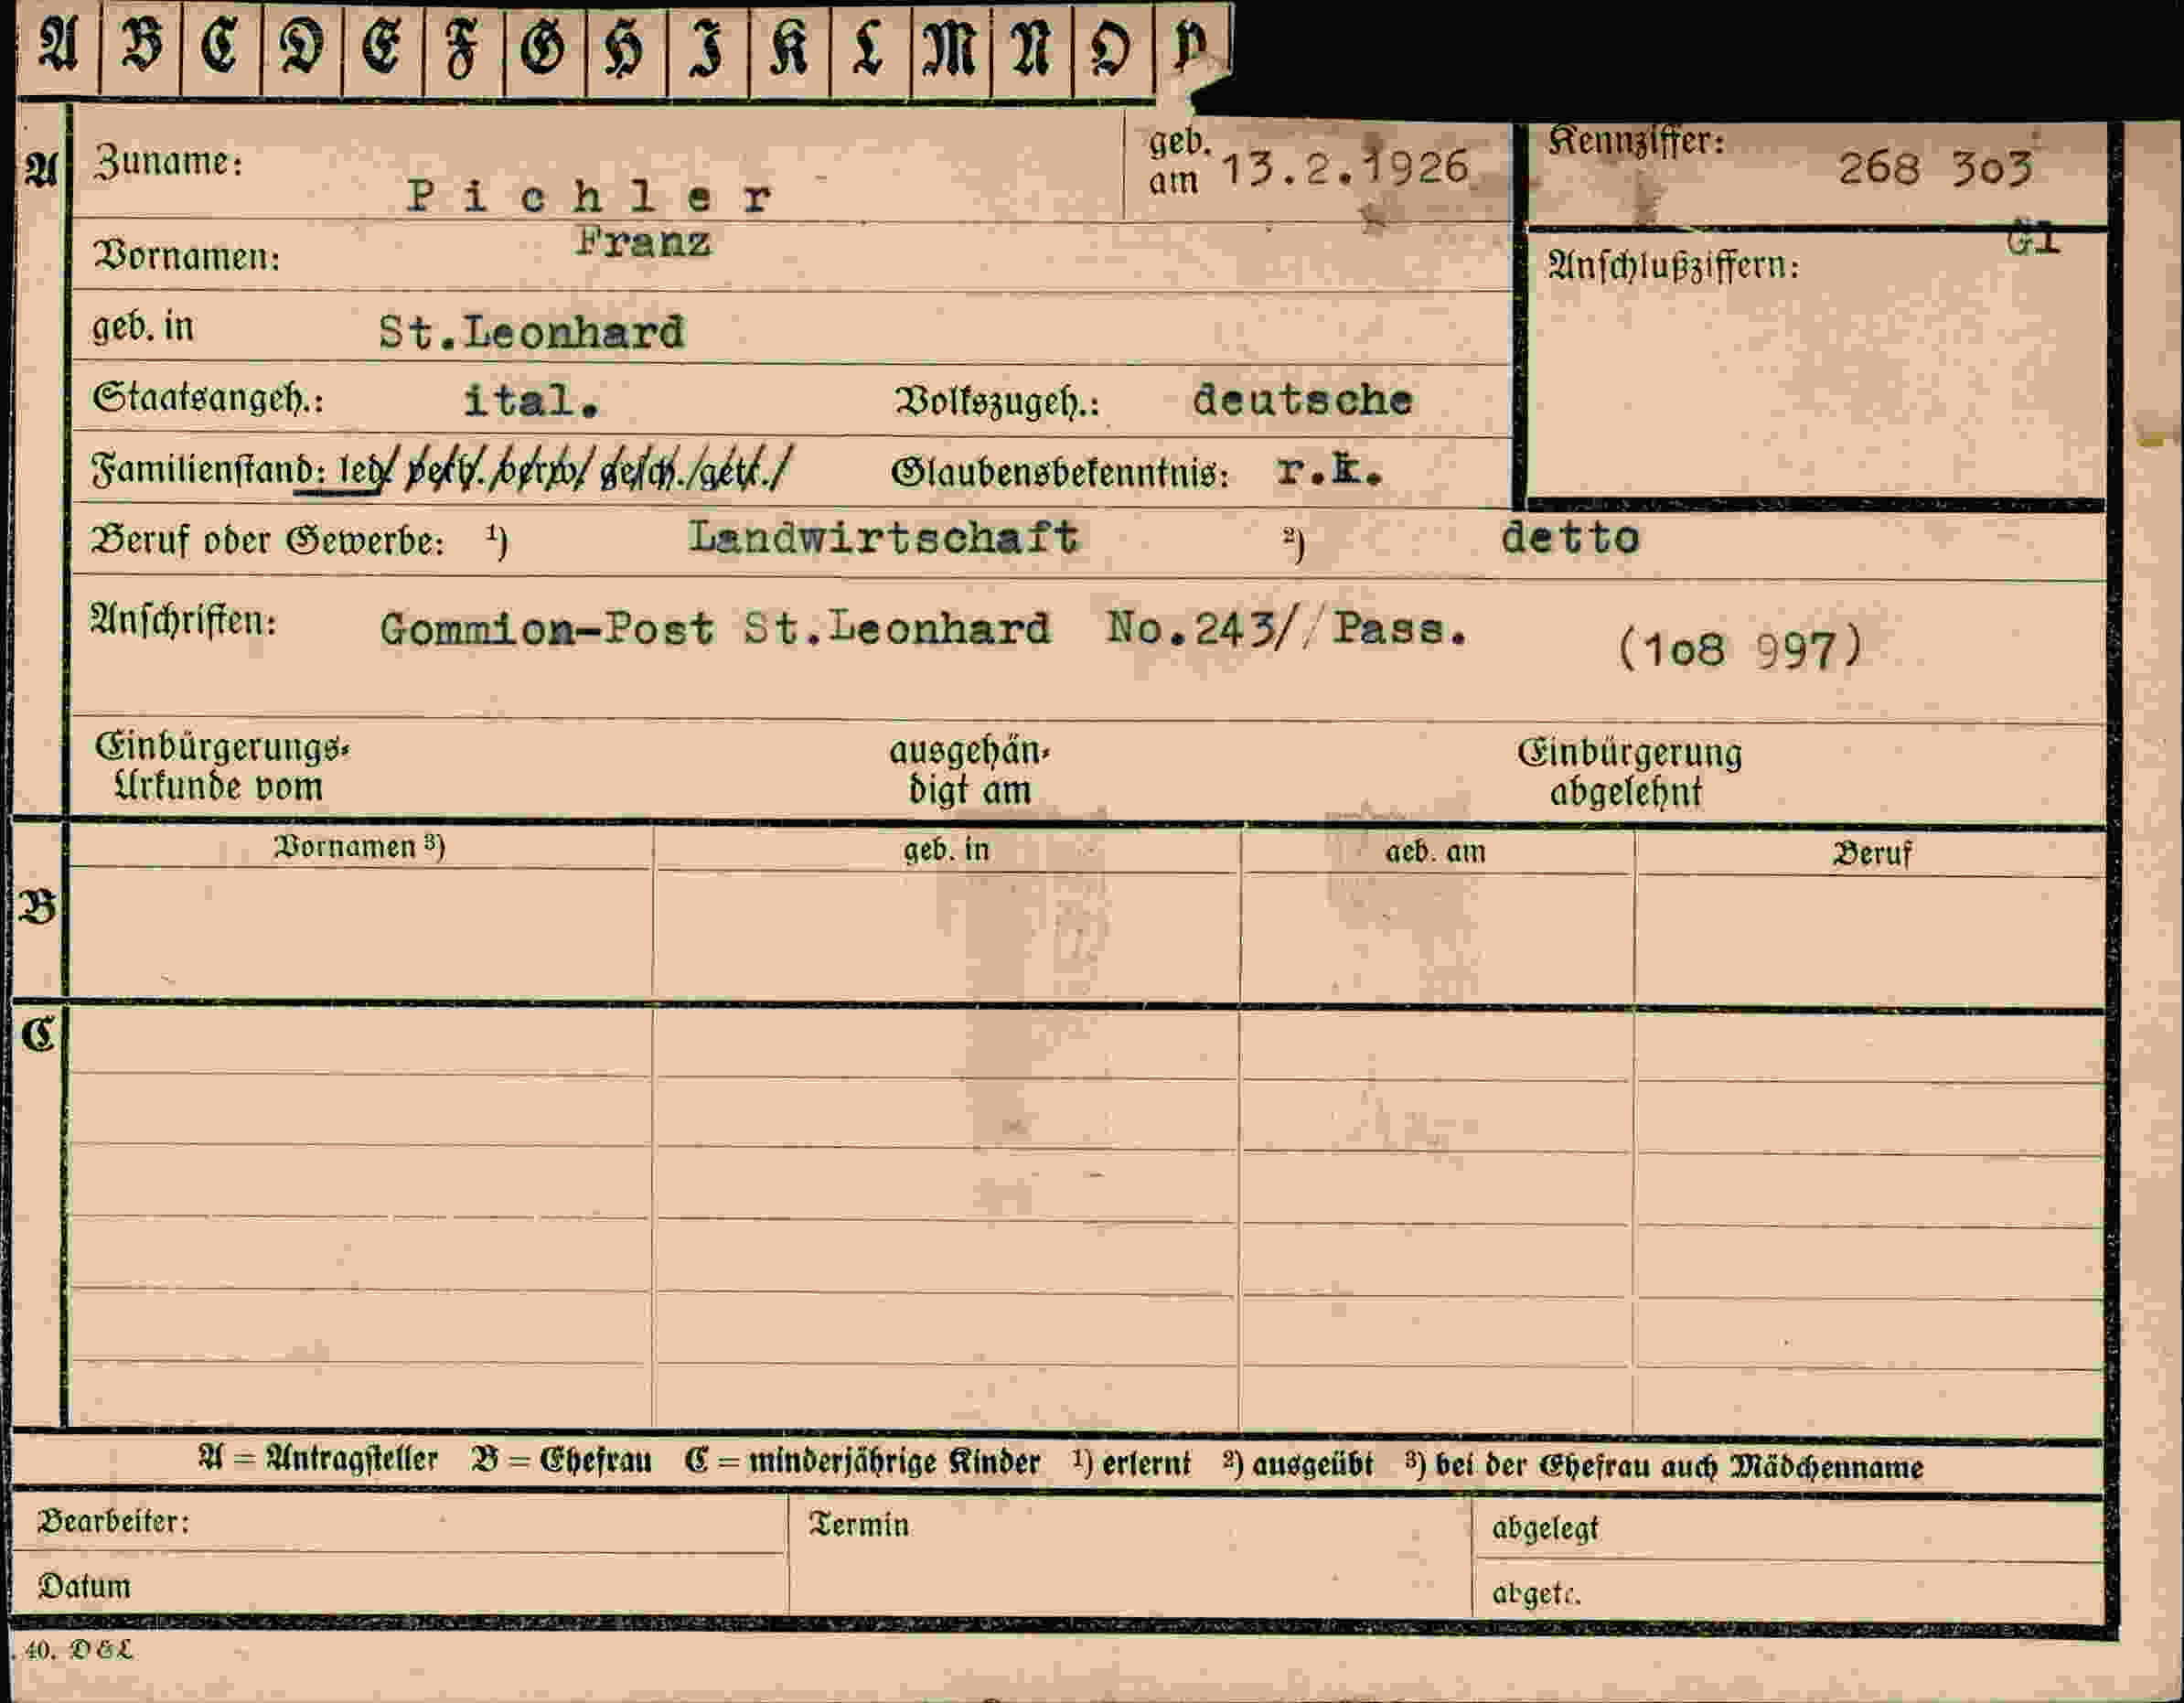 A B C D E F G H I K L M N O P
A Zuname: Pichler geb. am 13.2.1926 Kennziffer: 268 3o3
Vornamen: Franz GI
geb. in St.Leonhard Anschlußziffern:
Staatsangeh.: ital. Volkszugeh.: deutsche
Familienstand: led/ verh./verw/ gesch./getr./ Glaubensbekenntnis: r.k.
Beruf oder Gewerbe: 1) Landwirtschaft 2) detto
Anschriften: Gommion-Post St.Leonhard No.243//Pass. (1o8 997)
Einbürgerungs-
Urkunde vom
ausgehän-
digt am
Einbürgerung
abgelehnt
B Vornamen 3) geb. in geb. am Beruf
C
A = Antragsteller B = Ehefrau C = minderjährige Kinder 1) erlernt 2) ausgeübt 3) bei der Ehefrau auch Mädchenname
Bearbeiter: Termin abgelegt
Datum abgetr.
40. D&L